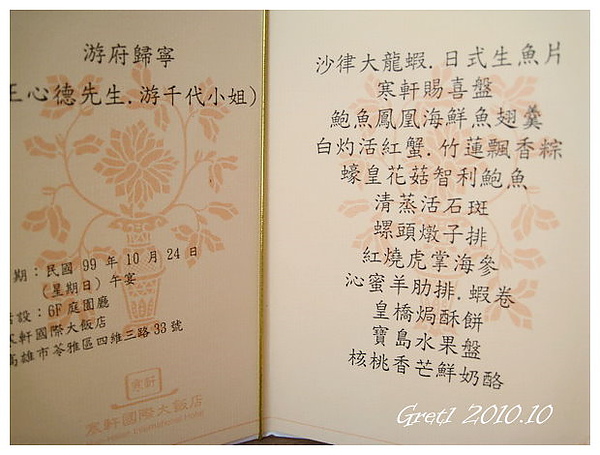 游府歸寧
王心德先生.游千代小姐)
期：民國 99 年 10 月 24 日
(星期日)午宴
設：6F 庭園廳
寒軒國際大飯店
高雄市苓雅區四維三路 33 號
寒軒
寒軒國際大飯店
International Hotel
沙律大龍蝦.日式生魚片
寒軒賜喜盤
鮑魚鳳凰海鮮魚翅羹
白灼活紅蟹.竹蓮飄香粽
蠔皇花菇智利鮑魚
清蒸活石斑
螺頭燉子排
紅燒虎掌海參
沁蜜羊肋排.蝦卷
皇橋焗酥餅
寶島水果盤
核桃香芒鮮奶酪
Gret1 2010.10